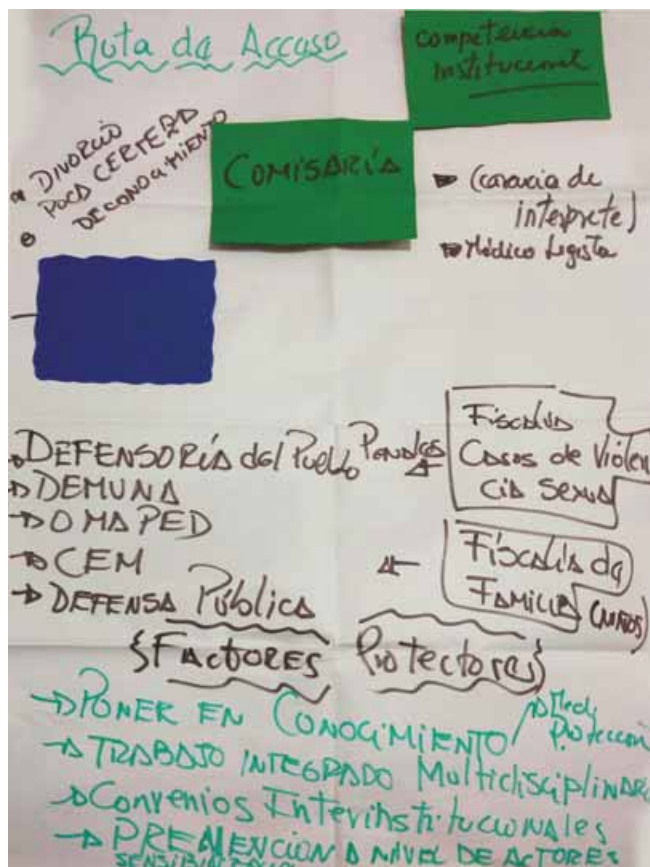 Ruta de Acceso
Competencia
Institucional
DIVORCIO
POCA CERTEZA
DECONOCIMIENTO
COMISARÍA
(carencia de
interprete)
Médico Legista
DEFENSORÍA del Pueblo
DEMUNA
OMAPED
CEM
DEFENSA Pública
Penales
Fiscalía
Casos de Violen
cia Sexual
Fiscalía de
FAMILIA (NIÑOS)
{FACTORES Protectores}
PONER EN CONOCIMIENTO / Med.
Protección
TRABAJO INTEGRADO Multidisciplinario
Convenios Interinstitucionales
A NIVEL DE ACTORES